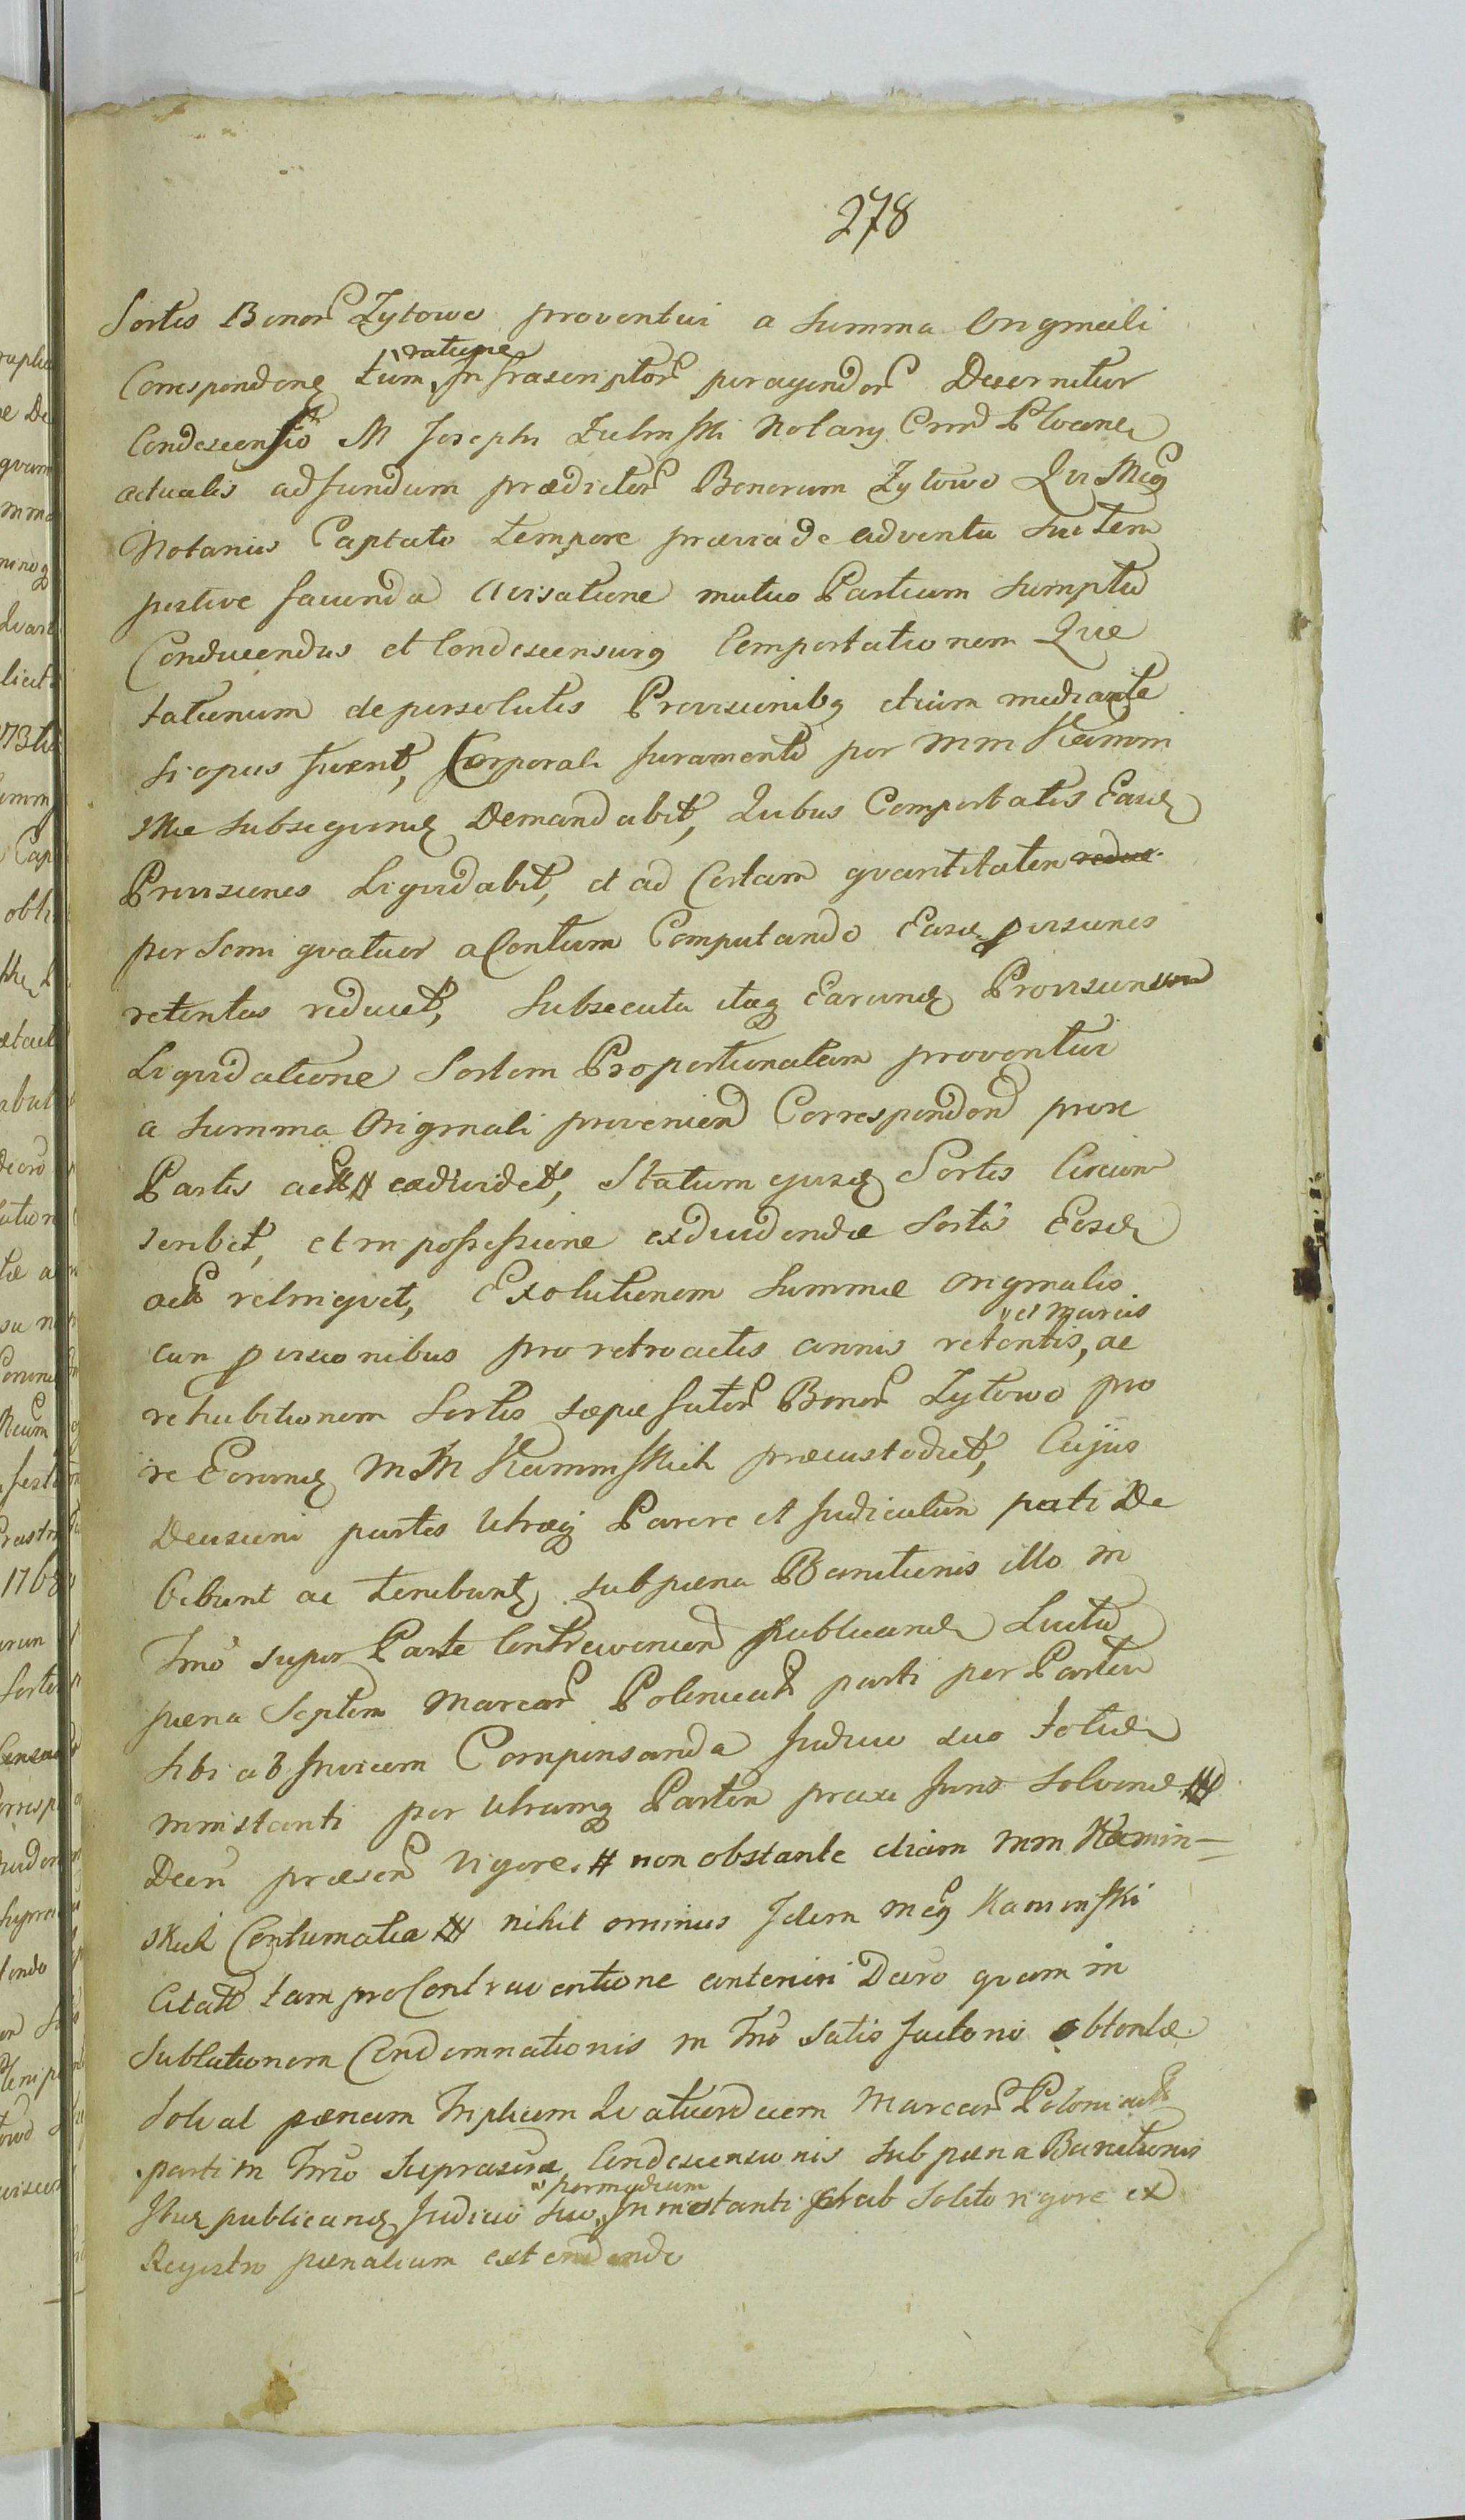 278
Sortis Bonor Zytowo proventui a Summa Originali
Correspondens tum ratione Infrascriptor peragendor Decernitur
Condescensio M Josephi Zielinski Notarij Crrd Plocens
actualis ad fundum prædictor Bonorum Zytowo Qui Mcus
Notarius Captato tempore prævia de adventu sui tem
pestive facienda avisatione mutuo Partium sumptu
Conducendus et Condescensurus Comportationem Quie
tationum de persolutis Provisionibq etiam mediante
si opus fuerit, Corporali Juramento per MM Kamin
skie subsequend Demandabit, Quibus Comportatis Easd
Provisiones Liquidabit, et ad Certam quantitatem
per Semi quatuor a Centum Computando Easd pvisiones
retentas reducet, Subsecuta itaq Earund Provisionum
Liquidatione Sortem Proportionatam proventui
a Summa Originali provenien Corresponden pro re
Partis act exdividet, Statum ejusd Sortis Circum
scribet, et in possessione exdividendæ Sortis Eosd
act relinquet, Exolutionem Summæ originalis
cum pvisionibus pro retroactis annis retentis, et Marcis ac
rehabitionem Sortis sæpefator Bonor Zytowo pro
re Eorund MM Kaminskich præcustodiet, Cujus
Decisioni partes Utræq Parere et Judicatum pati De
bebunt ac tenebunt sub pæna Banitionis illo in
Tnno super Parte Contravenien publicand Luitu
pæna Septem Marcar Polonical parti per Partem
sibi ab Invicem Compensanda Judicio suo totid
ininstanti per Utramq Partem præxe Juris solvend
Decri præsen Vigore. # non obstante etiam MM Kamin=
skich Contumatia nihil ominus Idem Mcus Kaminski
Citatus tam pro Contraventione anteriori Decro quam in
Sublationem Condemnationis in Tnno satisfactorio obtentæ
Solvat pænam Triplicem Quatuordecem Marcar Polonical
parti in Tnno Suprascrip Condescensionis sub pæna Banitionis
Istius publicand Judicio suo per medium In instanti sub solito rigore ex
Registro pænalium extendendo